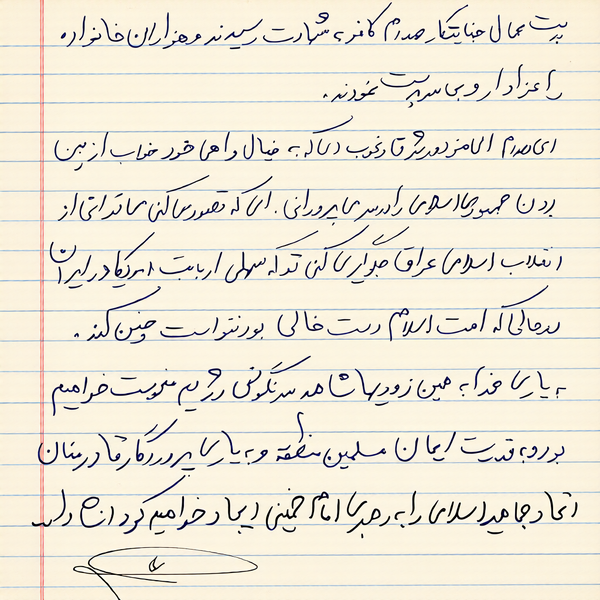 بدست عمال جنایتکار صدام کافر به شهادت رسیدند و هزاران خانواده
را عزادار و بی سرپرست نمودند.
ای صدام ای مزدور شرق و غرب ای که به خیال واهی خود خواب از بین
بردن جمهوری اسلامی را در سر می پرورانی. ای که تصور می کنی می توانی از
انقلاب اسلامی عراق جلوگیری کنی تو که سهلی اربابت امریکا در ایران
در حالی که امت اسلام دست خالی بود نتوانست چنین کند.
به یاری خدا به همین زودیها شاهد سرنگونی رژیم منحوست خواهیم
بود و به قدرت ایمان مسلمین منطقه و به یاری پروردگار قادر منان
اتحاد جماهیر اسلامی را به رهبری امام خمینی ایجاد خواهیم کرد انشاءالله